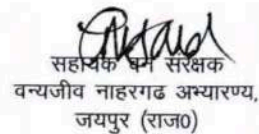 सहायक वन संरक्षक
वन्यजीव नाहरगढ अभ्यारण्य,
जयपुर (राज0)